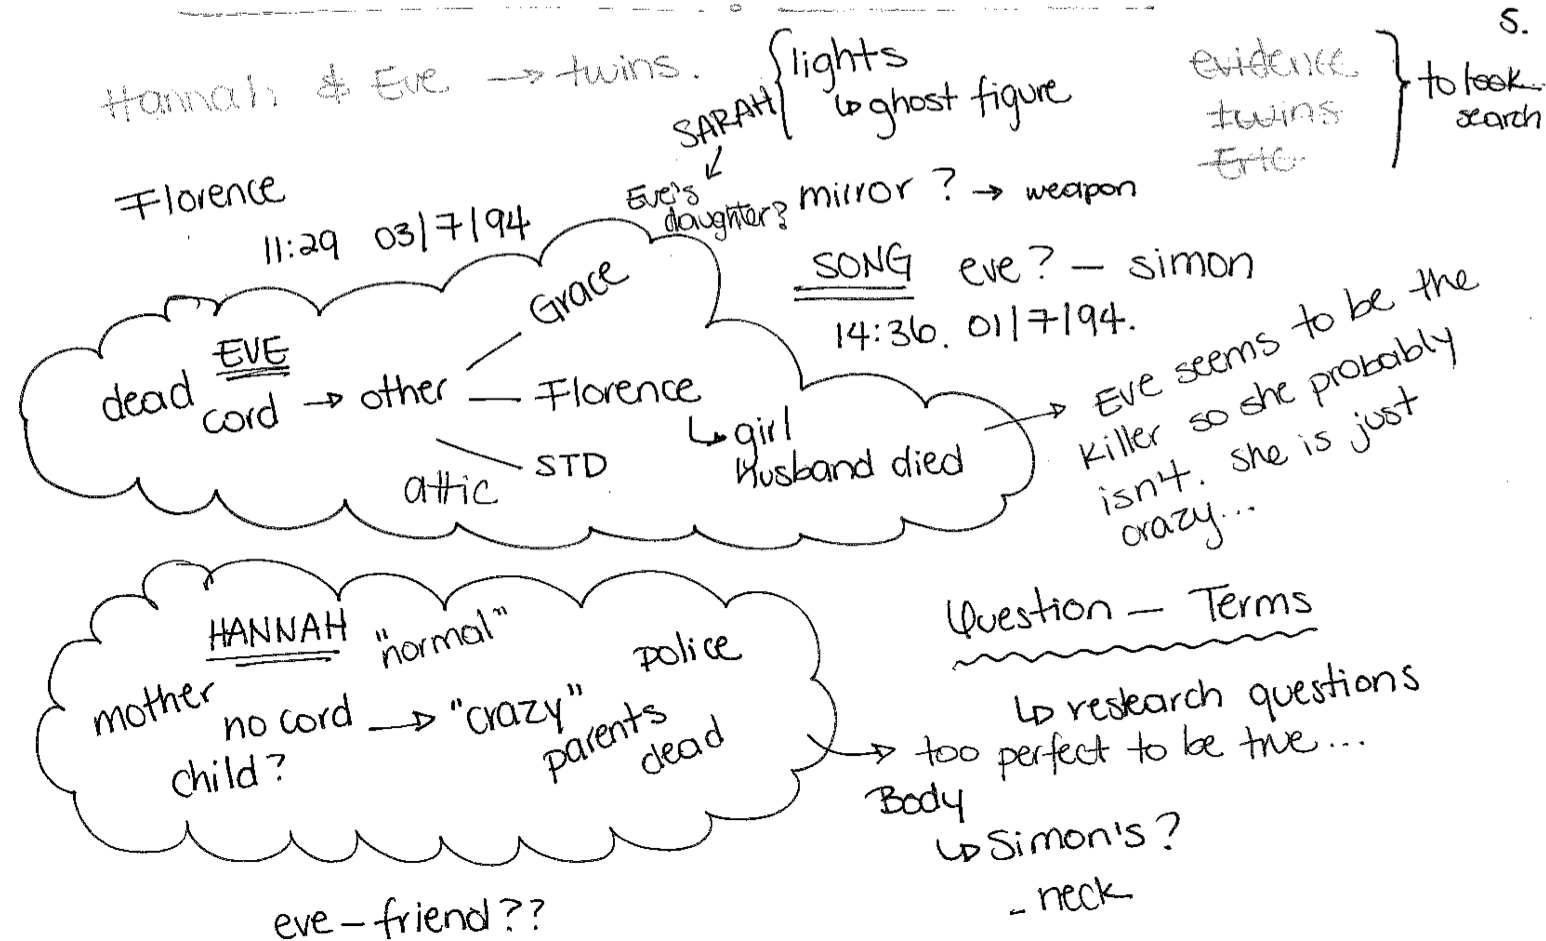 S.
Hannah & Eve → twins.
SARAH { lights
↳ ghost figure
evidence
twins
Eric
} to look
search
Florence
11:29 03/7/94
Eve's
daughter?
mirror ? → weapon
SONG eve? – simon
14:36. 01/7/94.
EVE
dead cord → other
Grace
Florence
↳ girl
Husband died
STD
attic
→ Eve seems to be the
killer so she probably
isn't. she is just
crazy...
HANNAH "normal"
police
mother
no cord → "crazy"
child?
parents
dead
→ too perfect to be true...
Question – Terms
↳ research questions
Body
↳ Simon's?
- neck
eve – friend??